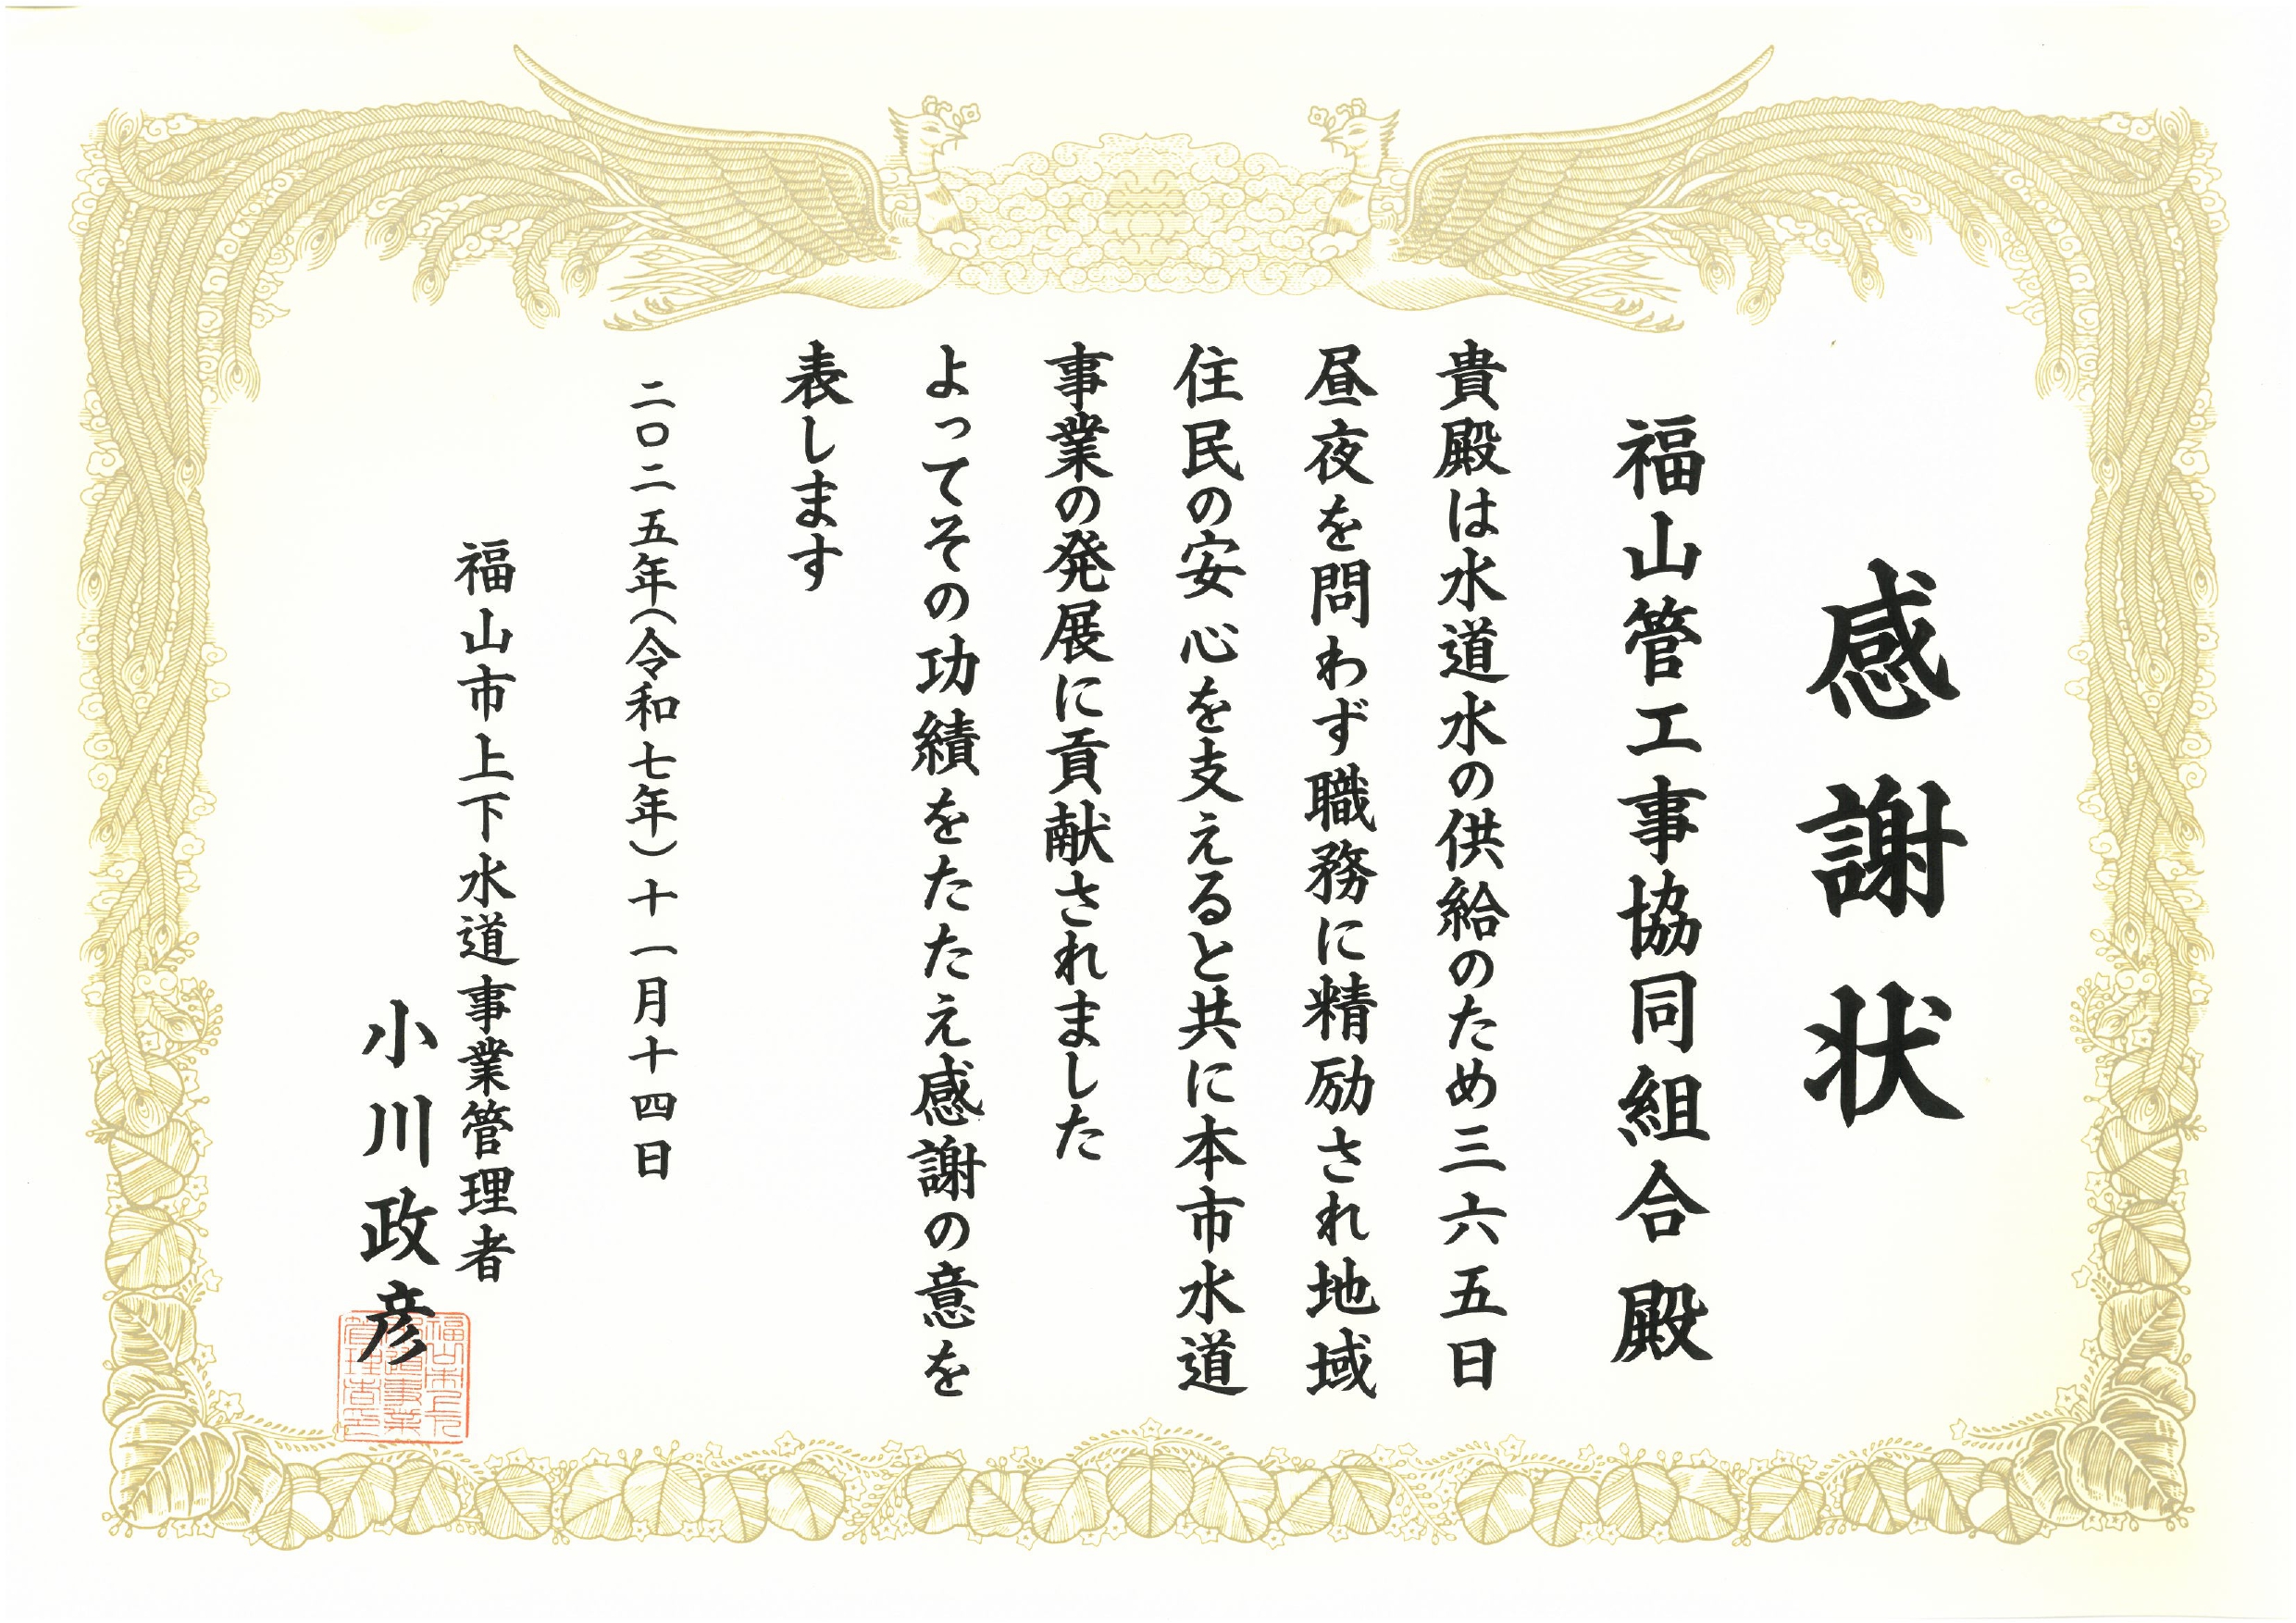 感謝状
福山管工事協同組合 殿
貴殿は水道水の供給のため三六五日
昼夜を問わず職務に精励され地域
住民の安心を支えると共に本市水道
事業の発展に貢献されました
よってその功績をたたえ感謝の意を
表します
二〇二五年(令和七年)十一月十四日
福山市上下水道事業管理者
小川政彦